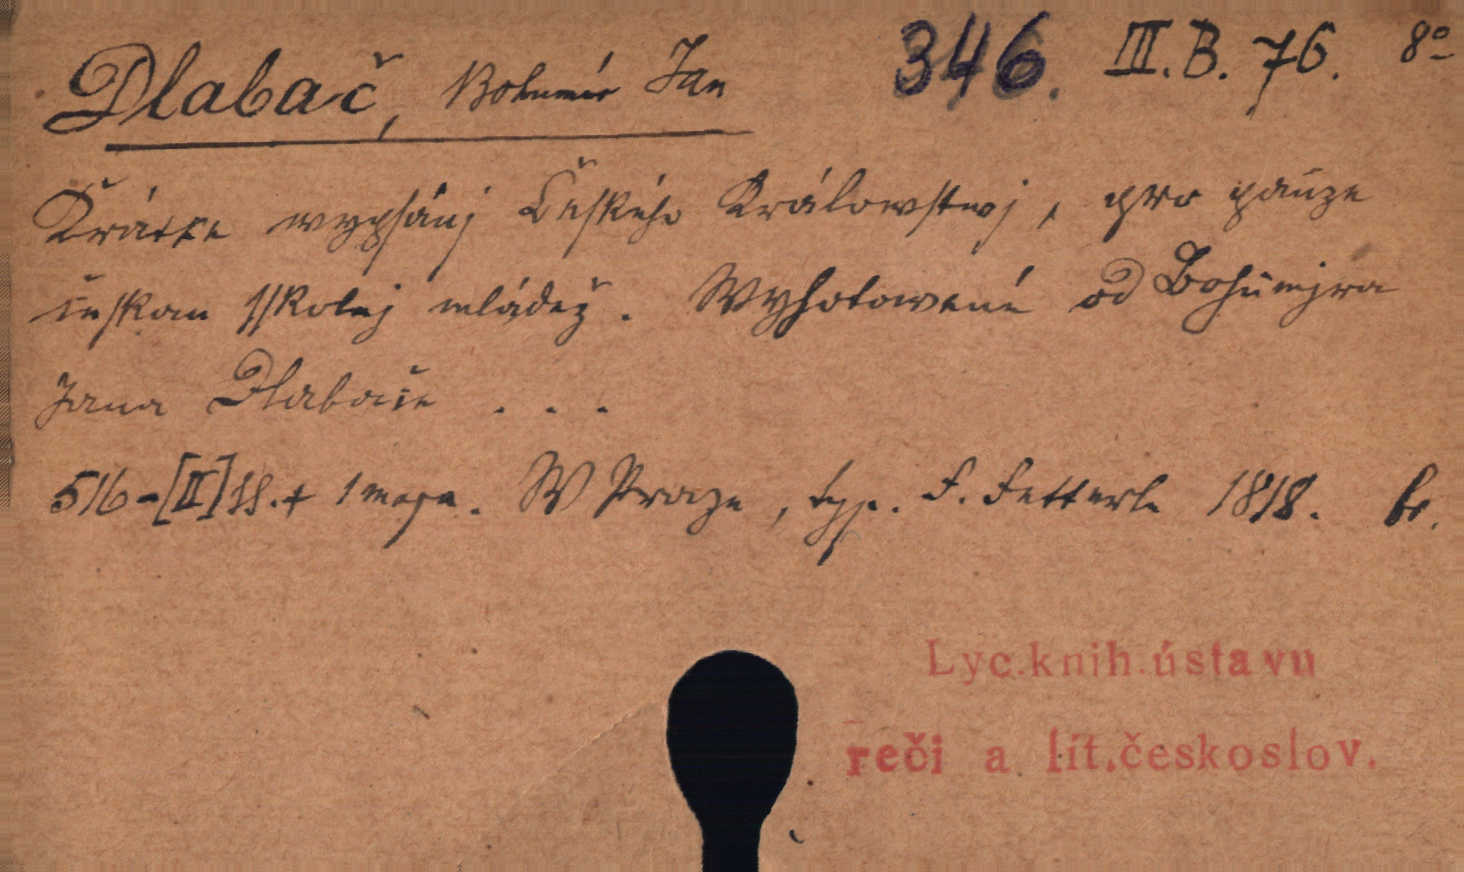 Dlabač, Bohumír Jan 346. III.B.76. 8º
Krátke wypsánj Českého Králowstwj, pro pauze
českau sskolnj mládež. Wyhotowené od Bohumjra
Jana Dlabače . . .
516-[II] S. + 1 mapa. W Praze, typ. F. Fetterle 1818. br.
Lyc.knih.ústavu
reči a lit.českoslov.